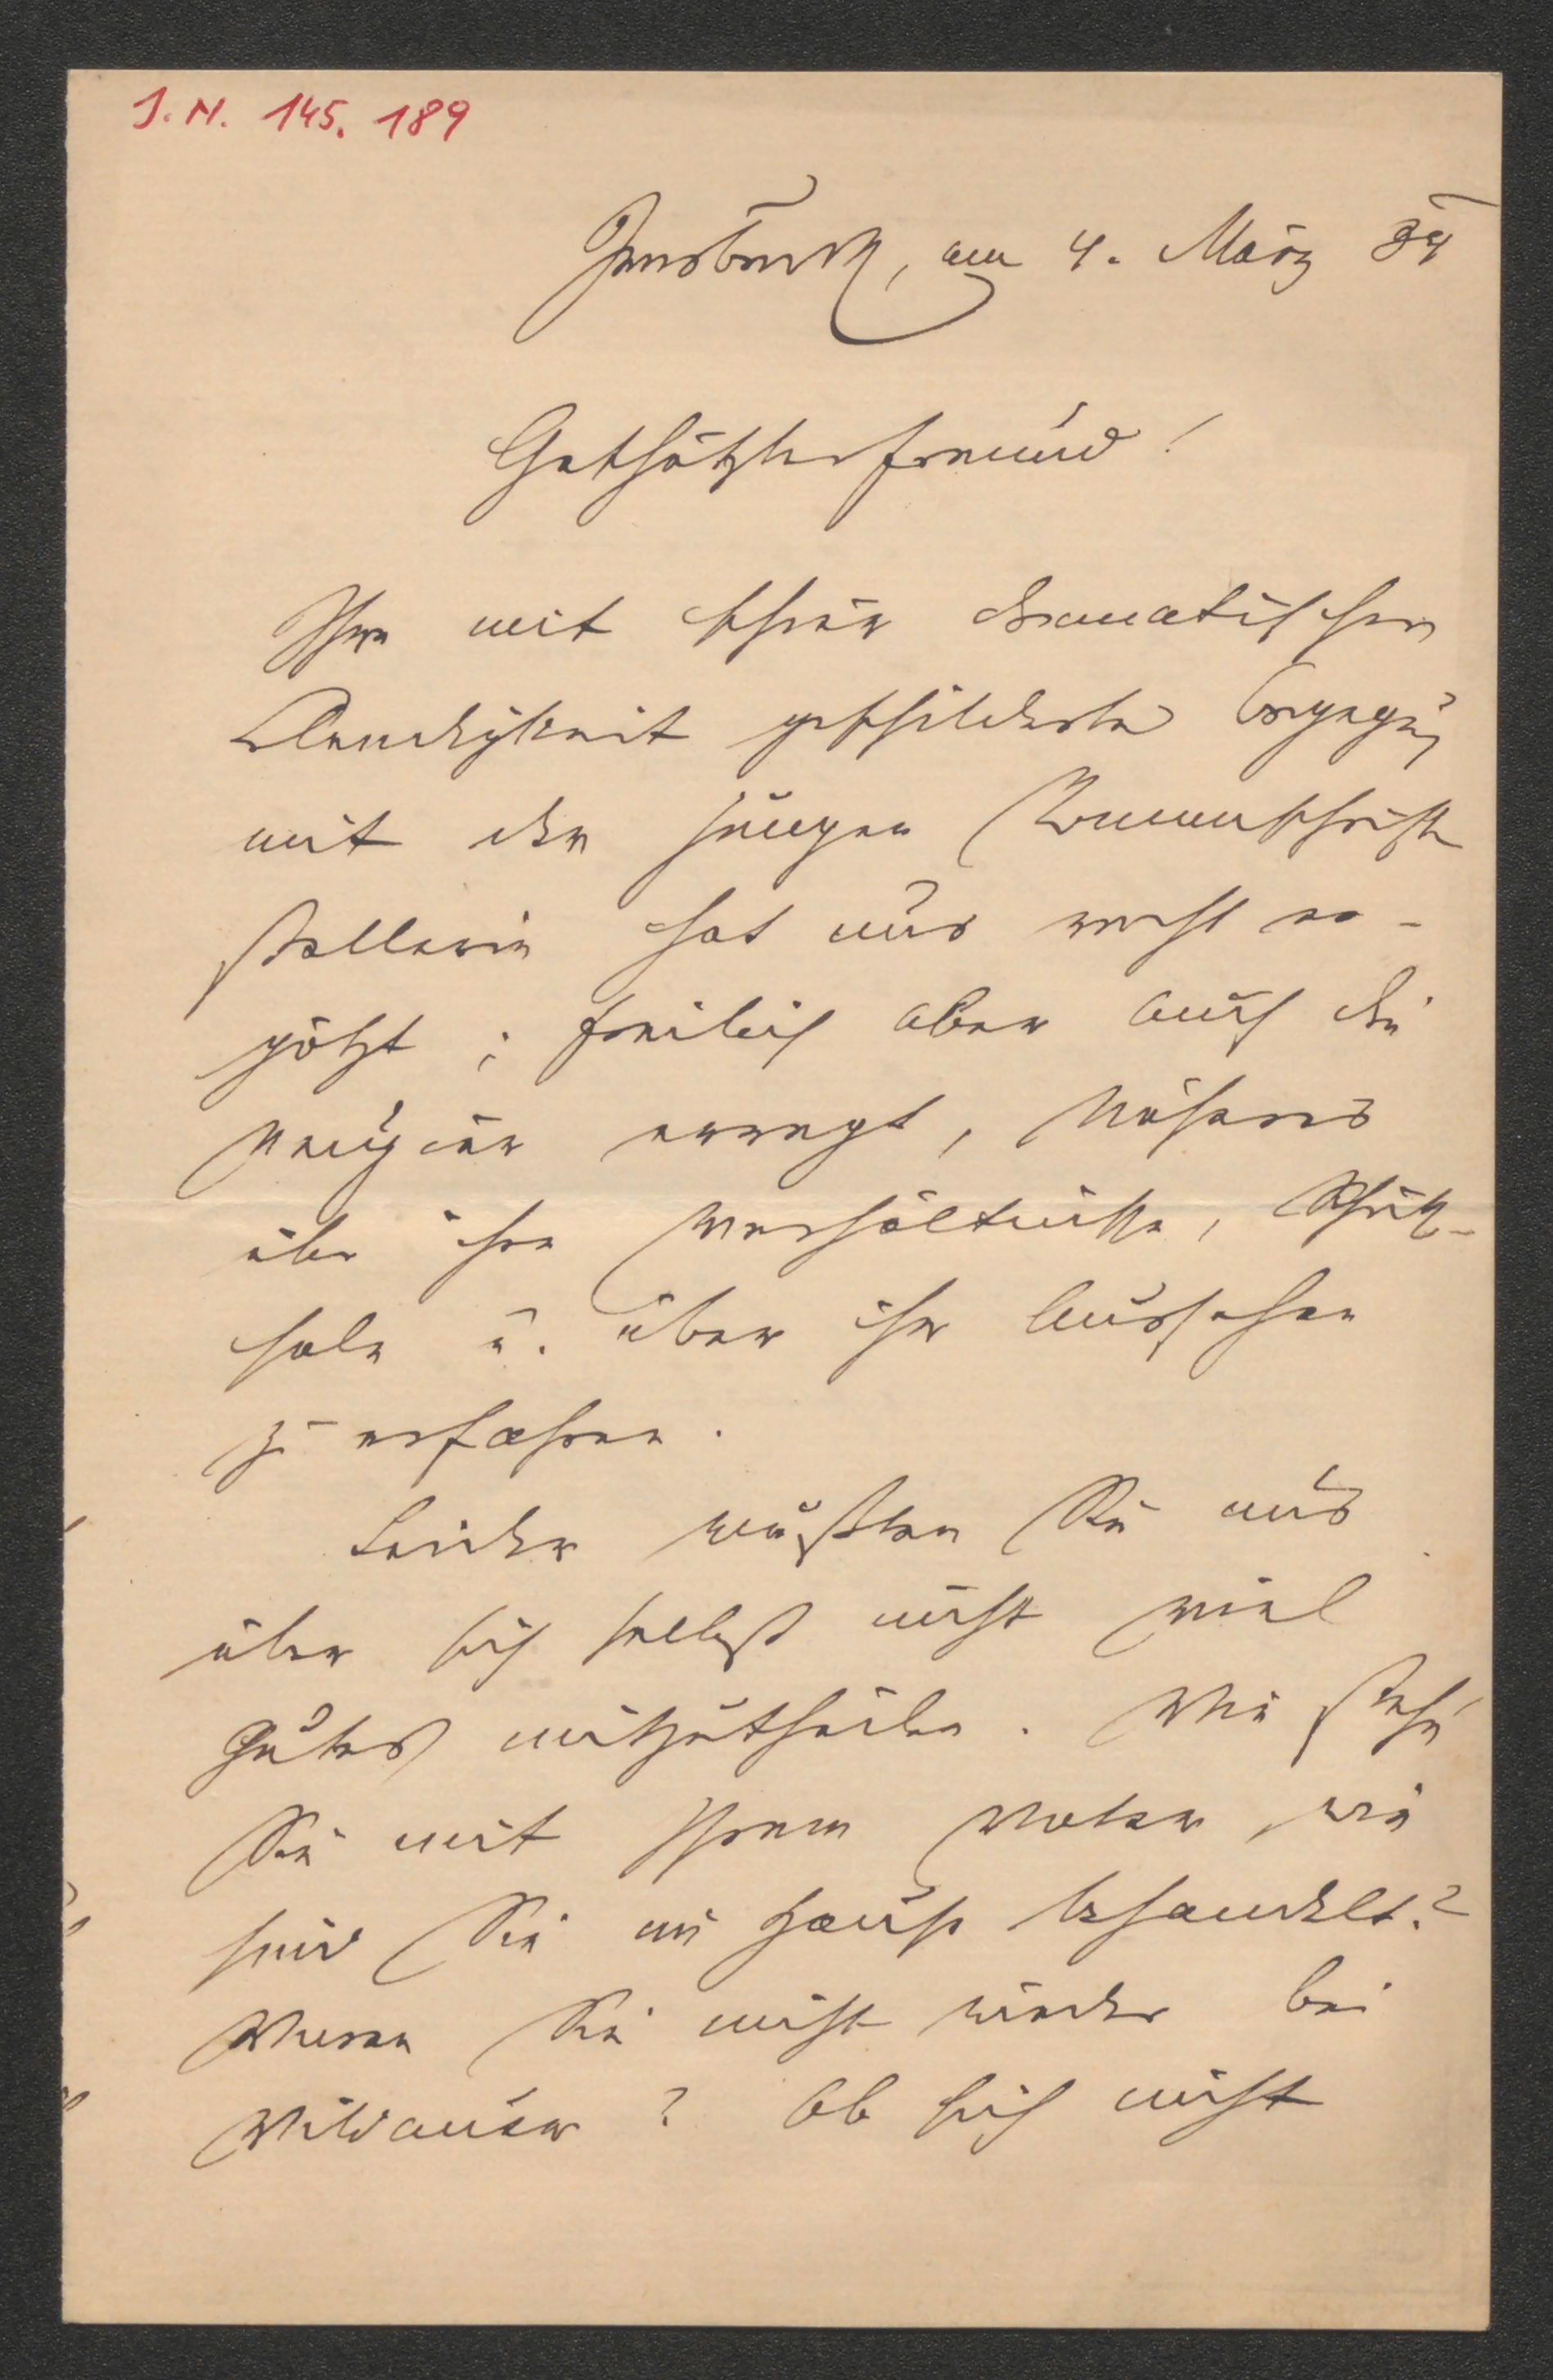 J. N. 145.189
Innsbruck, am 4. März 84
Geschätzter Freund!
Ihre mit schier dramatischer
Lebendigkeit geschilderte Begegng
mit der jungen Romanschrift
stellerin hat uns recht er-
götzt; freilich aber auch die
Neugier erregt, Näheres
über ihre Verhältnisse, Schick-
sale u. über ihr Aussehen
zu erfahren.
Leider wußten Sie uns
über sich selbst nicht viel
Gutes mitzutheilen. Wie stehn
Sie mit Ihrem Vater, wie
sind Sie im Hause behandelt?
Waren Sie nicht wieder bei
Wildauer? Ob sich nicht